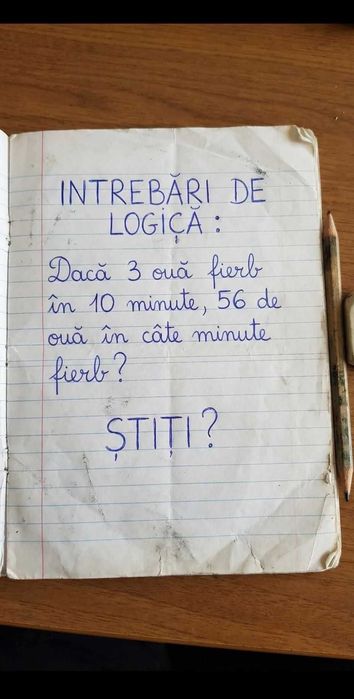 INTREBĂRI DE
LOGICĂ :
Dacă 3 ouă fierb
în 10 minute, 56 de
ouă în câte minute
fierb?
ȘTIȚI?